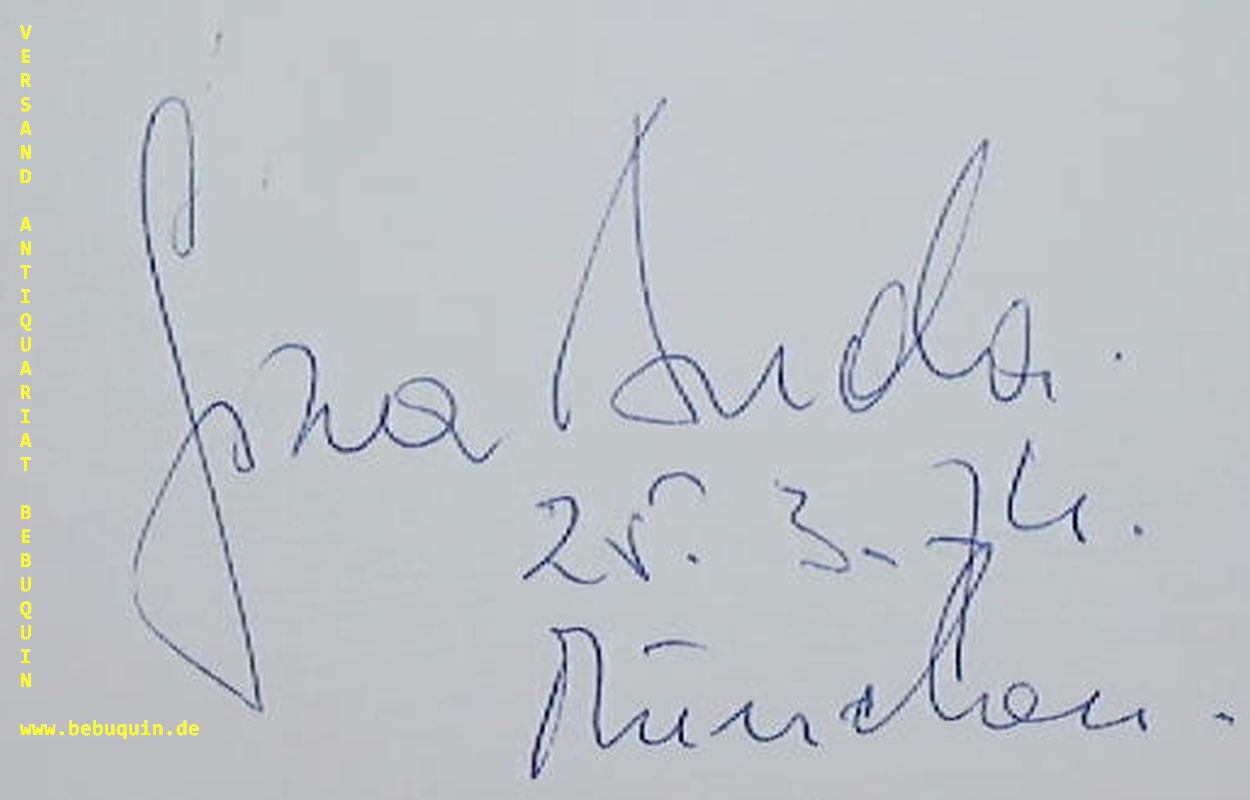 VERSAND ANTIQUARIAT BEBUQUIN
Géza Anda.
25. 3. 74.
München.
www.bebuquin.de